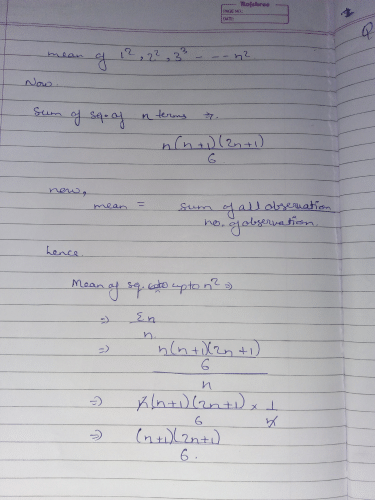 Rajshree
PAGE NO.:
DATE:
mean of 1², 2², 3³ - - - - n²
Now
Sum of sq. of n terms ⇒
n(n+1)(2n+1)
6
now,
mean = sum of all observation
no. of observation.
hence
Mean of sq. upto n² ⇒
⇒ Σn
n
⇒ n(n+1)(2n+1)
6
n
⇒ n(n+1)(2n+1) × 1
6 n
⇒ (n+1)(2n+1)
6.